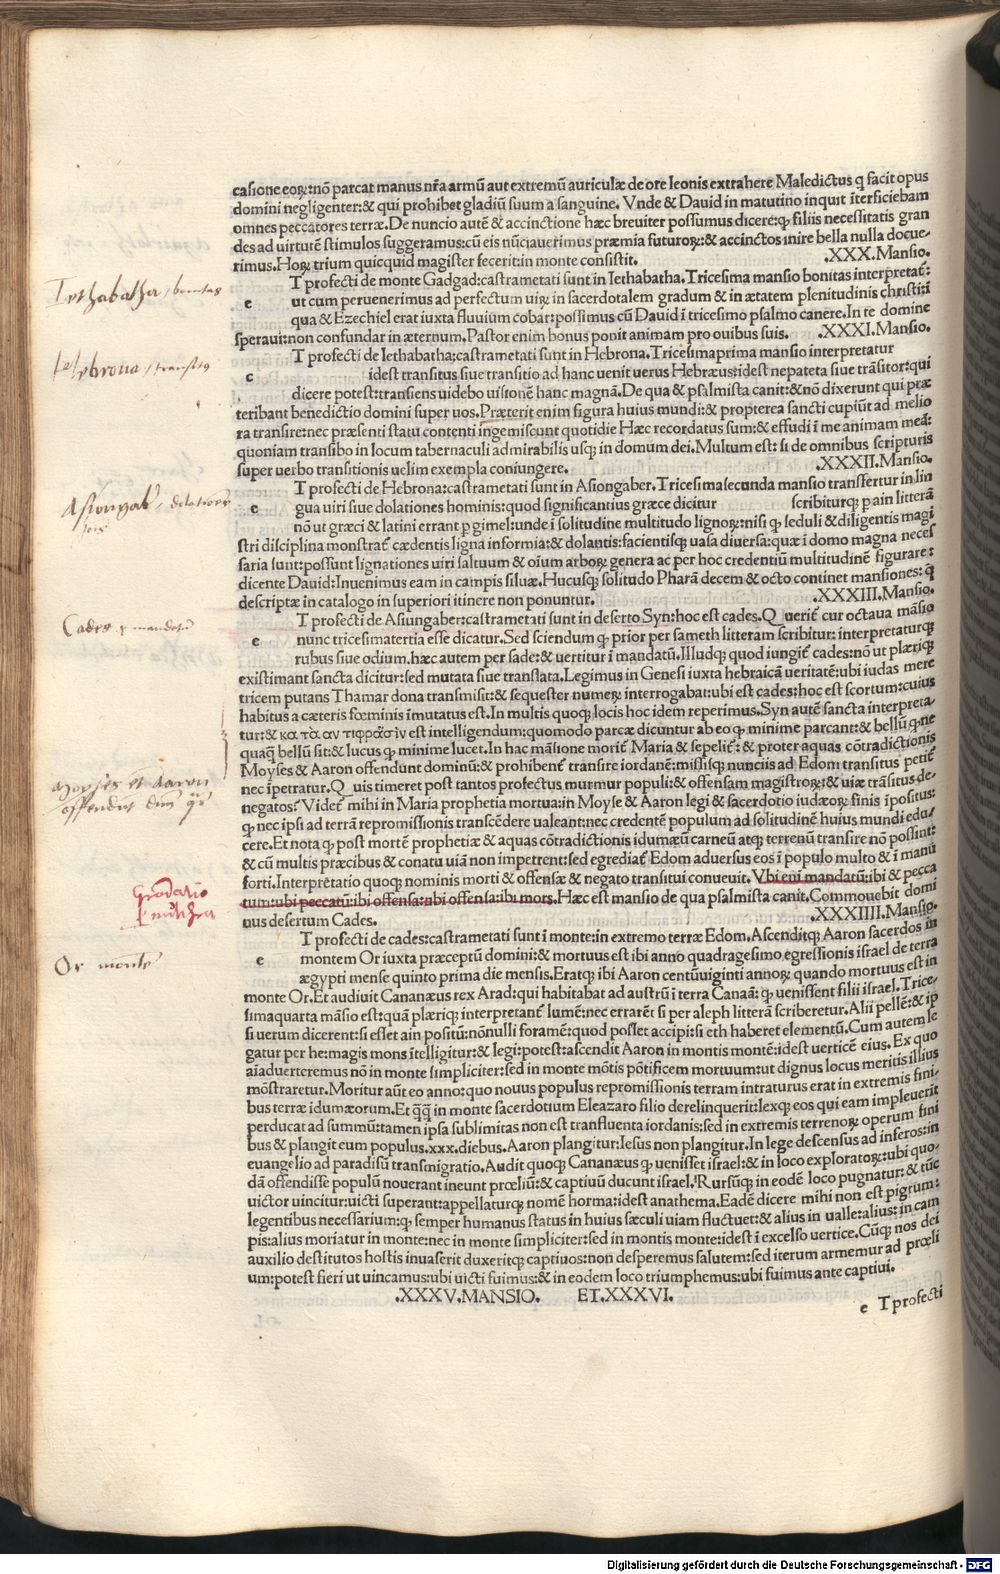 casione eoꝝ:nō parcat manus nr̄a armū aut extremū auriculæ de ore leonis extrahere Maledictus q facit opus
domini negligenter:& qui prohibet gladiū suum a sanguine. Vnde & Dauid in matutino inquit īterficiebam
omnes peccatores terræ. De nuncio autē & accinctione hæc breuiter possumus dicere:ꝙ filiis necessitatis gran
des ad uirtutē stimulos suggeramus:cū eis nūciauerimus præmia futuroꝝ:& accinctos inire bella nulla docue-
rimus. Hoꝝ trium quicquid magister fecerit:in monte consistit. .XXX.Mansio.
T profecti de monte Gadgad:castrametati sunt in Iethabatha. Tricesima mansio bonitas interpretat̄:
e ut cum peruenerimus ad perfectum uirꝝ in sacerdotalem gradum & in ætatem plenitudinis christi:ī
qua & Ezechiel erat iuxta fluuium cobar:possimus cū Dauid ī tricesimo psalmo canere. In te domine
speraui:non confundar in æternum. Pastor enim bonus ponit animam pro ouibus suis. .XXXI.Mansio.
T profecti de Iethabatha:castrametati sunt in Hebrona. Tricesimaprima mansio interpretatur
e idest transitus siue transitio ad hanc uenit uerus Hebræus:idest nepateta siue trāsitor:qui
dicere potest:transiens uidebo uisionē hanc magnā. De qua & psalmista canit:& nō dixerunt qui præ
teribant benedictio domini super uos. Præterit enim figura huius mundi:& propterea sancti cupiūt ad melio
ra transire:nec præsenti statu contenti ingemiscunt quotidie Hæc recordatus sum:& effudi ī me animam meā:
quoniam transibo in locum tabernaculi admirabilis usqꝫ in domum dei. Multum est: si de omnibus scripturis
super uerbo transitionis uelim exempla coniungere. .XXXII.Mansio.
T profecti de Hebrona:castrametati sunt in Asiongaber. Tricesimasecunda mansio transfertur in lin
e gua uiri siue dolationes hominis:quod significantius græce dicitur scribiturqꝫ p ain litterā
nō ut græci & latini errant p gimel:unde ī solitudine multitudo lignoꝝ:nisi ꝙ seduli & diligentis magi
stri disciplina monstrat̄ cædentis ligna informia:& dolantis:facientisqꝫ uasa diuersa:quæ ī domo magna neces
saria sunt:possunt lignationes uiri saltuum & oīum arboꝝ genera ac per hoc credentiū multitudinē figurare:
dicente Dauid:Inuenimus eam in campis siluæ. Hucusqꝫ solitudo Pharā decem & octo continet mansiones: q̄
descriptæ in catalogo in superiori itinere non ponuntur. .XXXIII.Mansio.
T profecti de Asiungaber:castrametati sunt in deserto Syn:hoc est cades. Q uerit̄ cur octaua māsio
e nunc tricesimatertia esse dicatur. Sed sciendum ꝙ prior per sameth litteram scribitur: interpretaturqꝫ
rubus siue odium. hæc autem per sade:& uertitur ī mandatū. Illudqꝫ quod iungit̄ cades:nō ut plæriqꝫ
existimant sancta dicitur:sed mutata siue translata. Legimus in Genesi iuxta hebraicā ueritatē:ubi iudas mere
tricem putans Thamar dona transmisit:& sequester numeꝝ interrogabat:ubi est cades:hoc est scortum:cuius
habitus a cæteris fœminis īmutatus est. In multis quoqꝫ locis hoc idem reperimus. Syn autē sancta interpreta-
tur:& κα τὰ αν τιφρασὶν est intelligendum:quomodo parcæ dicuntur ab eo ꝙ minime parcant:& bellū ꝙ ne
quaqꝫ bellū sit:& lucus ꝙ minime lucet. In hac māsione morit̄ Maria & sepelit̄: & propter aquas cōtradictionis
Moyses & Aaron offendunt dominū:& prohibent̄ transire iordanē:missisqꝫ nunciis ad Edom transitus petit̄
nec īpetratur. Q uis timeret post tantos profectus murmur populi:& offensam magistroꝝ:& uiæ trāsitus de-
negatos? Videt̄ mihi in Maria prophetia mortua:in Moyse & Aaron legi & sacerdotio iudæoꝝ finis īpositus:
ꝙ nec ipsi ad terrā repromissionis transcēdere ualeant:nec credentē populum ad solitudinē huius mundi edu-
cere. Et nota ꝙ post mortē prophetiæ & aquas cōtradictionis idumæū carneū atqꝫ terrenū transire nō possint:
& cū multis præcibus & conatu uiā non impetrent:sed egrediat̄ Edom aduersus eos ī populo multo & ī manu
forti. Interpretatio quoqꝫ nominis morti & offensæ & negato transitui conueuit. Vbi eni mandatū:ibi & pecca
tum:ubi peccatū:ibi offensa:ubi offensa:ibi mors. Hæc est mansio de qua psalmista canit. Commouebit domi
nus desertum Cades. .XXXIIII.Mansio.
T profecti de cades:castrametati sunt ī monte:in extremo terræ Edom. Ascenditqꝫ Aaron sacerdos in
e montem Or iuxta præceptū domini:& mortuus est ibi anno quadragesimo egressionis israel de terra
ægypti mense quinto prima die mensis. Eratqꝫ ibi Aaron centūuiginti annoꝝ quando mortuus est in
monte Or. Et audiuit Cananæus rex Arad:qui habitabat ad austrū ī terra Canaā: ꝙ uenissent filii israel. Trice-
simaquarta māsio est:quā plæriqꝫ interpretant̄ lumē:nec errarēt si per aleph litterā scriberetur. Alii pellē:& ip
si uerum dicerent:si esset ain positū:nōnulli foramē:quod posset accipi:si eth haberet elementū. Cum autem le
gatur per he:magis mons ītelligitur:& legi:potest:ascendit Aaron in montis montē:idest uerticē eius. Ex quo
aīaduerteremus nō in monte simpliciter:sed in monte mōtis pōtificem mortuum:ut dignus locus meritis illius
mōstraretur. Moritur aūt eo anno:quo nouus populus repromissionis terram intraturus erat in extremis fini-
bus terræ idumæorum. Et q̄q̄ in monte sacerdotium Eleazaro filio derelinquerit:lexqꝫ eos qui eam impleuerit
perducat ad summū:tamen ipsa sublimitas non est transfluenta iordanis:sed in extremis terrenoꝝ operum fini
bus & plangit eum populus.xxx.diebus. Aaron plangitur:Iesus non plangitur. In lege descensus ad inferos:in
euangelio ad paradisū transmigratio. Audit quoqꝫ Cananæus ꝙ uenisset israel:& in loco exploratoꝝ:ubi quo-
dā offendisse populū nouerant ineunt prœliū:& captiuū ducunt israel. Rursūqꝫ in eodē loco pugnatur: & tūc
uictor uincitur:uicti superant:appellaturqꝫ nomē horma:idest anathema. Eadē dicere mihi non est pigrum:
legentibus necessarium:ꝙ semper humanus status in huius sæculi uiam fluctuet:& alius in ualle:alius:in cam
pis:alius moriatur in monte:nec in monte simpliciter:sed in montis monte:idest ī excelso uertice. Cūqꝫ nos dei
auxilio destitutos hostis inuaserit duxeritqꝫ captiuos:non desperemus salutem:sed iterum armemur ad prœli
um:potest fieri ut uincamus:ubi uicti fuimus:& in eodem loco triumphemus:ubi fuimus ante captiui.
.XXXV.MANSIO. ET.XXXVI.
e T profecti
Iethabatha / bonitas
Hebrona / transitus
Asiongab̄
Cades
moyses et Aaron
offendūt
Gradatio
pulchra
Or monte
Digitalisierung gefördert durch die Deutsche Forschungsgemeinschaft - DFG